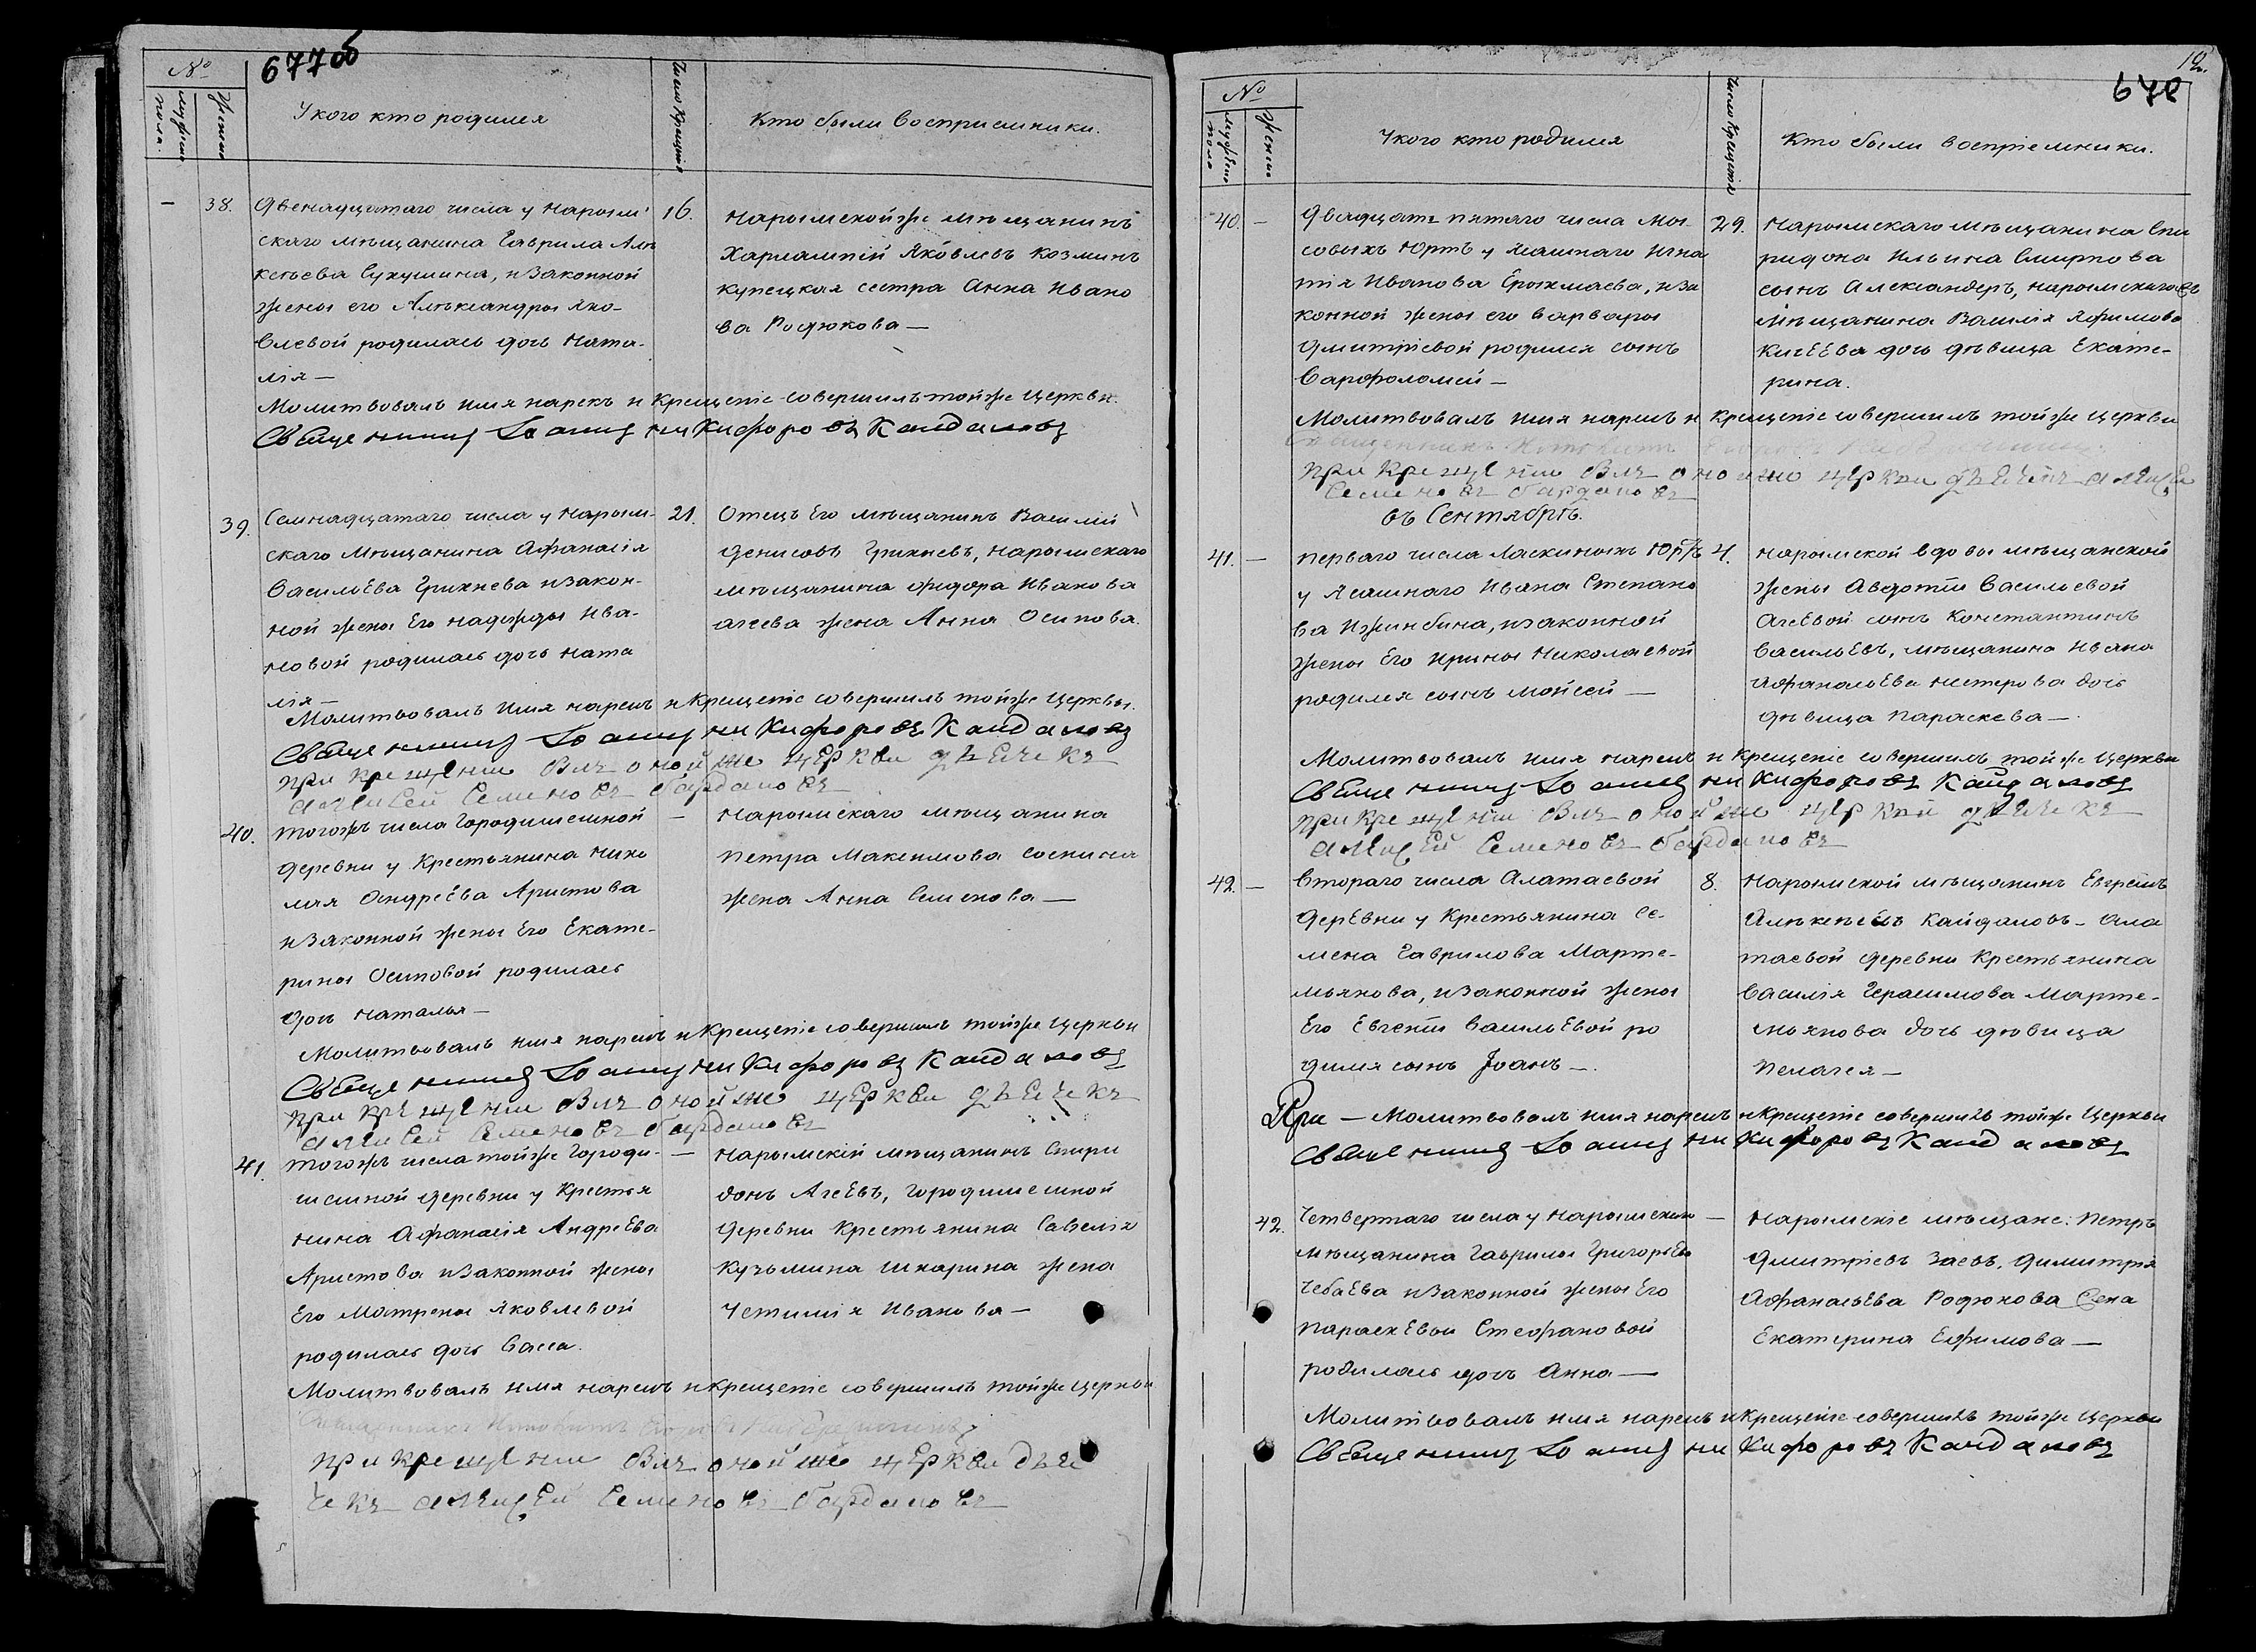 677об
№
мужеска
пола.
Женска
У кого кто родился
Число крещенія
Кто были восприемники.
—
38.
Двенадцатаго числа у Нарым
скаго мѣщанина Гаврила Але
ксѣева Сухушина, и законной
жены его Алѣксандры Яко-
влевой родилась дочь Ната-
лія —
16.
Нарымской же мѣщанинъ
Харлампій Яковлевъ Козминъ
купецкая сестра Анна Ивано
ва Родюкова —
Молитвовалъ имя нарекъ и Крещеніе совершилъ тойже Церкви.
Свещенникъ Іоаннъ Никифоровъ Кайдаловъ
39.
Семнадцатаго числа у Нарым-
скаго Мѣщанина Афанасія
Васильева Грихнева и закон-
ной жены Его Надежды Ива-
новой родилась дочь Ната
лія —
21.
Отецъ Его мѣщанинъ Василій
Денисовъ Грихневъ, Нарымскаго
мѣщанина Федора Иванова
агеева жена Анна Осипова.
Молитвовалъ Имя нарекъ и Крещеніе совершилъ тойже Церквы.
Свещенникъ Іоаннъ Никифоровъ Кайдаловъ
при крещении былъ оной же церкви дьечекъ
алексей Семеновъ
40.
тогожъ числа Городищенской
деревни у Крестьянина Нико
лая Андреева Аристова
и законной жены Его Екате-
рины Осиповой родилась
дочь Наталья —
—
Нарымскаго мѣщанина
Петра Максимова Соснина
жена Анна Семенова —
Молитвовалъ имя нарекъ и Крещеніе совершилъ тойже Церкви
Свещенникъ Іоаннъ Никифоровъ Кайдаловъ
при крещении былъ оной же церкви дьечекъ
алексей Семеновъ
41.
тогожъ числа тойже Городи-
щенской деревни у Крестья
нина Афанасія Андреева
Аристова и законной жены
Его Матрены Яковлевой
родилась дочь Васса.
—
Нарымскій мѣщанинъ Спири
донъ Агеевъ, Городищенской
деревни Крестьянина Савелія
Кузьмина Шкарина жена
Иванова —
Молитвовалъ имя нарекъ и крещеніе совершилъ тойже Церкви
при крещении былъ оной же церкви дье
чекъ алексей Семеновъ
12.
678
№
Мужеско
пола
Женско
У кого кто родился
Число Крещенія
Кто были воспріемники.
40.
—
Двадцать пятаго числа
совыхъ Юртъ у Ясашнаго Игна
тія Иванова, и за
конной жены его Варвары
Дмитріевой родился сынъ
Варфоломей —
29.
Нарымскаго мѣщанина Спи
ридона Ильина Смирнова
сынъ Александеръ, нарымскагожъ
мѣщанина Василія Яфимова
Кигеева дочь дѣвица Екате-
рина.
Молитвовалъ имя нарекъ и Крещеніе совершилъ тойже Церкви
при крещении былъ оной же церкви дьечекъ алексей
Семеновъ
въ Сентябрѣ.
41.
—
Перваго числа Ласкиныхъ Юртъ
у Ясашнаго Ивана Степано
ва Ижинбина, и законной
жены Его Ирины Николаевой
родился сынъ Мойсей —
4.
Нарымской вдовы мѣщанской
жены Авдотіи Васильевой
Агеевой сынъ Константинъ
Васильевъ, мѣщанина Ивана
Афанасьева Нестерова дочь
дѣвица Параскева —
Молитвовалъ имя нарекъ и Крещеніе совершилъ тойже Церкви
Свещенникъ Іоаннъ Никифоровъ Кайдаловъ
при крещении былъ оной же церкви дьечекъ
алексей Семеновъ
42.
—
Втораго числа Алатаевой
деревни у Крестьянина Се-
мена Гаврилова Марте-
мьянова, и законной жены
Его Евгеніи Васильевой ро
дился сынъ Іоанъ —
8.
Нарымской мѣщанинъ
Кайдаловъ - Ала
таевой деревни Крестьянина
Василія Герасимова Марте-
мьянова дочь дѣвица
Пелагея —
При — Молитвовалъ имя нарекъ и Крещеніе совершилъ тойже Церкви
Свещенникъ Іоаннъ Никифоровъ Кайдаловъ
42.
Четвертаго числа у Нарымскаго
мѣщанина Гаврилы Григорьева
Чебаева и законной жены Его
Параскевы Стефановой
родилась дочь Анна —
—
Нарымскіе мѣщане: Петръ
Дмитріевъ Заевъ, Димитрія
Афанасьева Родюкова жена
Екатерина Ефимова —
Молитвовалъ имя нарекъ и Крещеніе совершилъ тойже Церкви
Свещенникъ Іоаннъ Никифоровъ Кайдаловъ